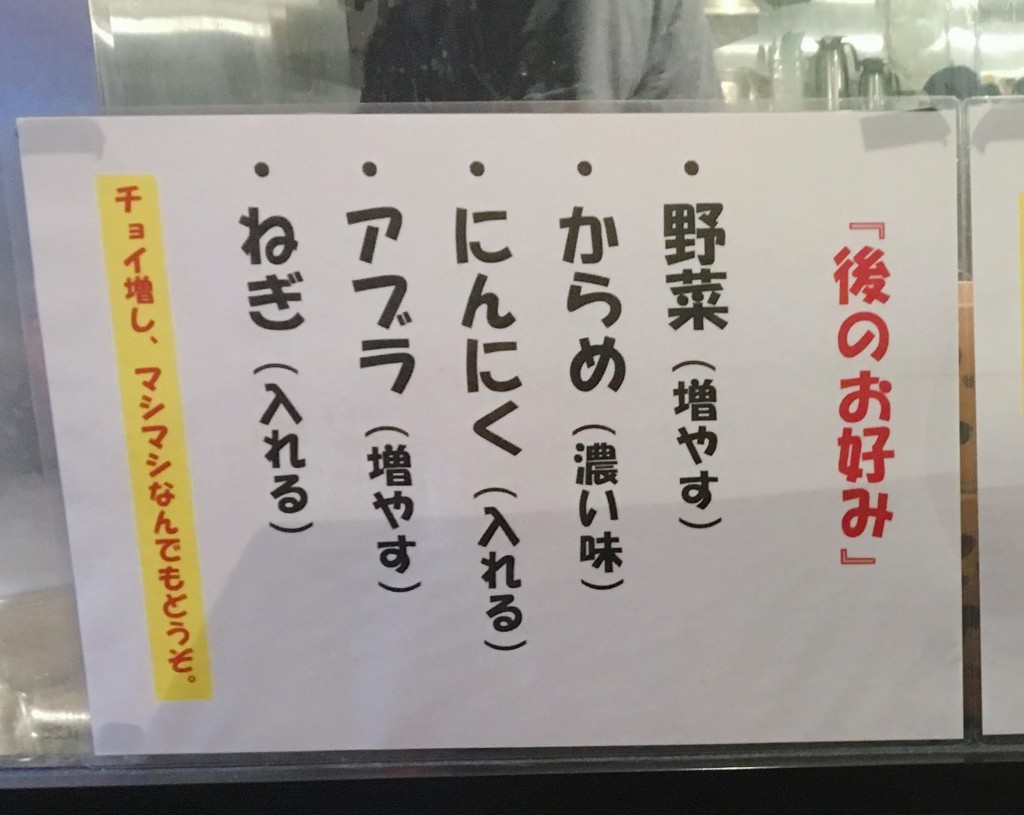 『後のお好み』
・野菜（増やす）
・からめ（濃い味）
・にんにく（入れる）
・アブラ（増やす）
・ねぎ（入れる）
チョイ増し、マシマシなんでもとうぞ。